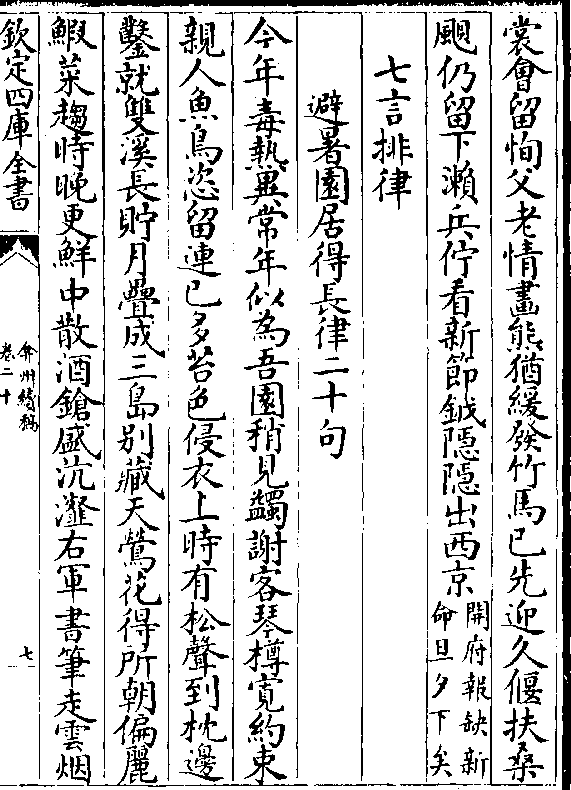 裳會留恂父老情畫熊猶緩發竹馬已先迎久偃扶桑
颶仍留下瀨兵佇看新節鉞隱隱出西京開府報缺新命旦夕下矣
七言排律
避暑園居得長律二十句
今年毒熱異常年似為吾園稍見蠲謝客琴樽寛約束
親人魚鳥恣留連已多苔色侵衣上時有松聲到枕邊
鑿就雙溪長貯月疊成三島别藏天鶯花得所朝偏麗
鰕菜趨時晩更鮮中散酒鎗盛沆瀣右軍書筆走雲烟
欽定四庫全書
弇州續稿
卷二十
七